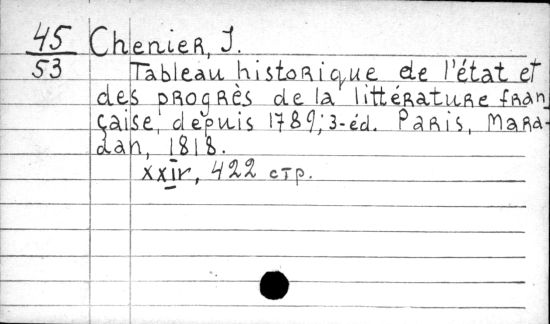 45 Chenier, J.
53
Tableau historique de l'état et
des progrès de la littérature fran
çaise, depuis 1789; 3-éd. Paris, Mara-
dan, 1818.
xxiv, 422 стр.